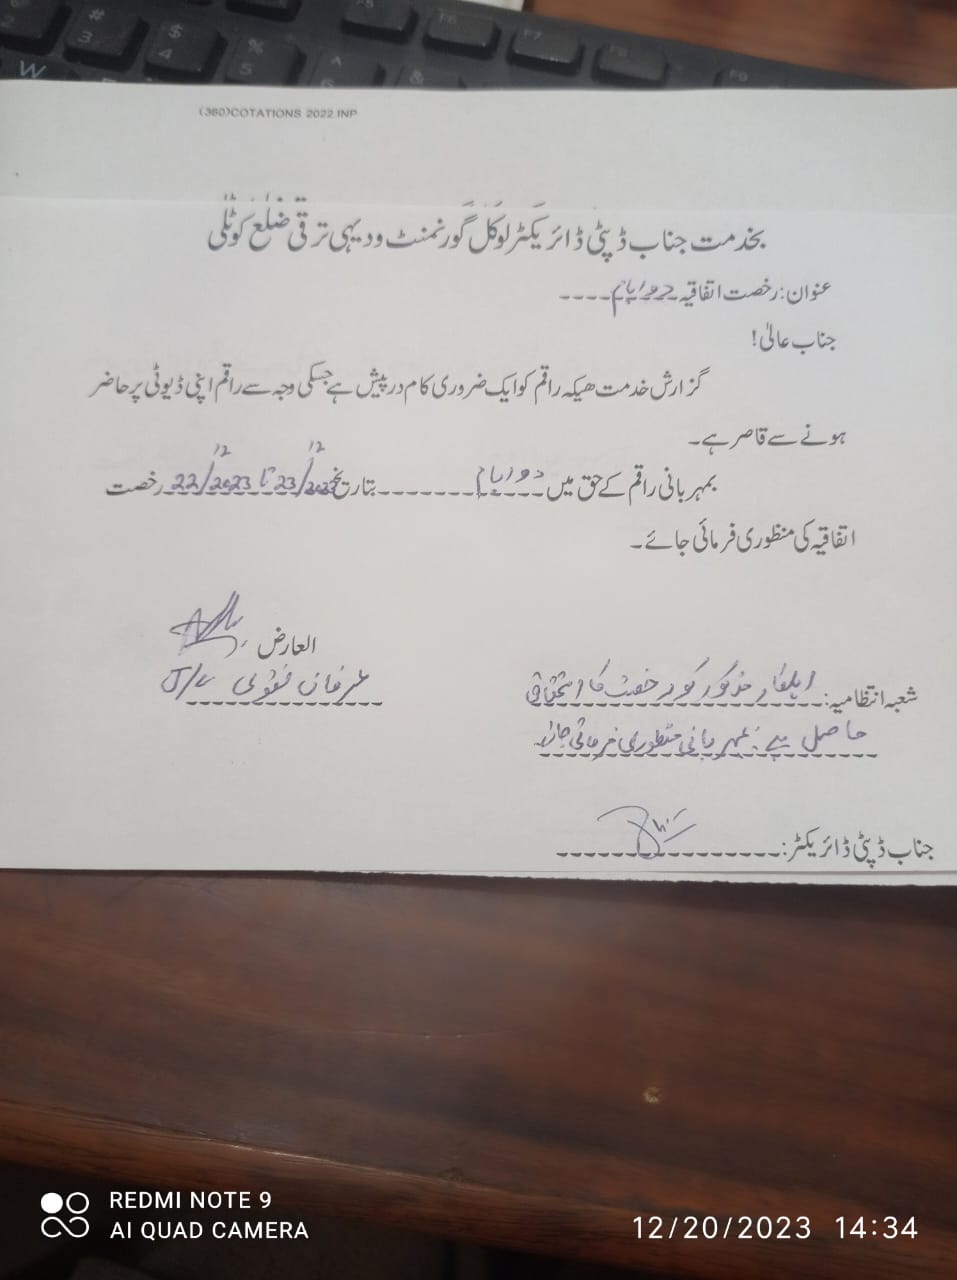 (360)COTATIONS 2022.INP
بخدمت جناب ڈپٹی ڈائریکٹر لوکل گورنمنٹ و دیہی ترقی ضلع کوٹلی
عنوان: رخصت اتفاقیہ دو ایام ----
جناب عالیٰ!
گزارش خدمت ھیکہ راقم کو ایک ضروری کام درپیش ہے جسکی وجہ سے راقم اپنی ڈیوٹی پر حاضر
ہونے سے قاصر ہے۔
بمہربانی راقم کے حق میں دو ایام بتاریخ 22/12/2023 تا 23/12/2023 رخصت
اتفاقیہ کی منظوری فرمائی جائے۔
العارض
عرفان نقوی J/C
شعبہ انتظامیہ: اہلکار مذکور کو رخصت کا استحقاق
حاصل ہے۔ بمہربانی منظوری فرمائی جائے
جناب ڈپٹی ڈائریکٹر:
REDMI NOTE 9
AI QUAD CAMERA
12/20/2023 14:34